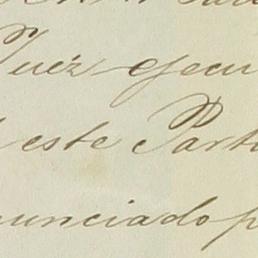 Juéz ejecu
este Part
nunciado p